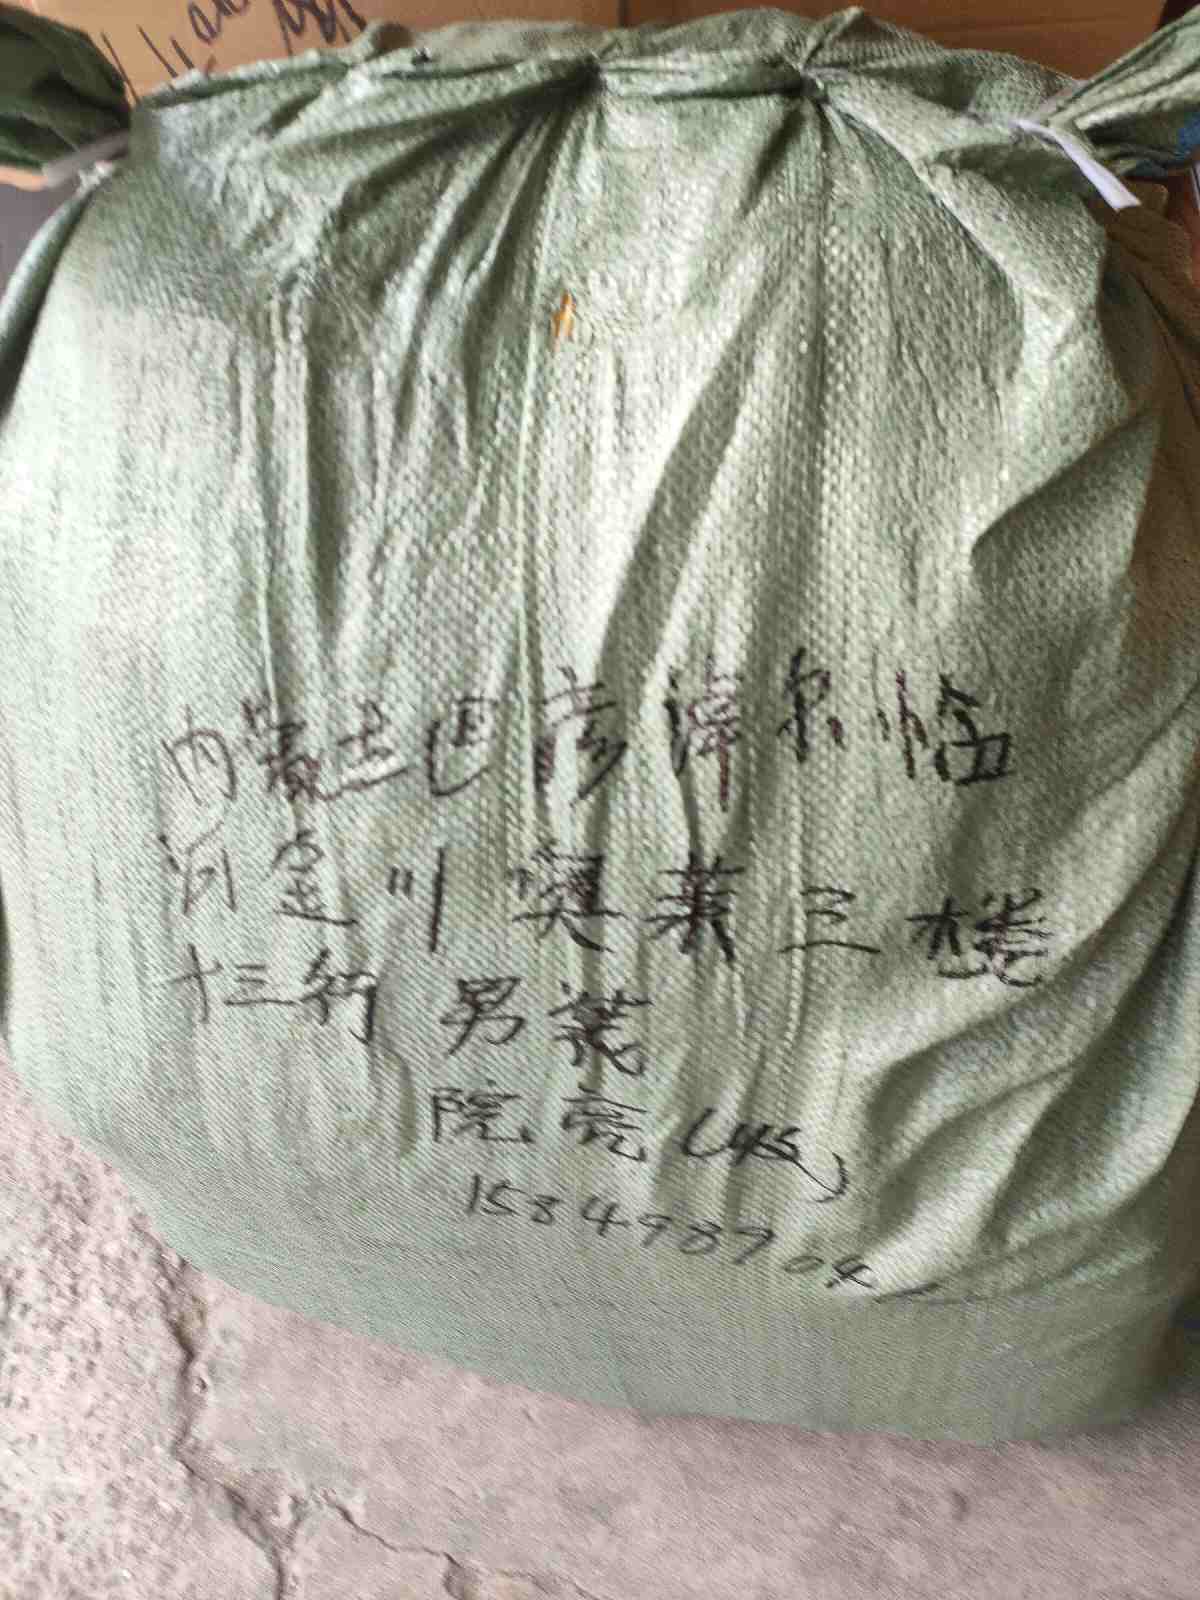 内蒙古巴彦淖尔临
河金川奥莱三楼
十三行男装
院亮(收)
158498704